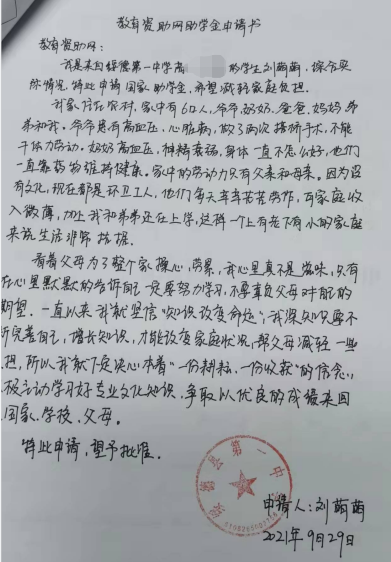 教育资助网助学金申请书
教育资助网：
我是来自绥德第一中学高 的学生刘萌萌，综合实
际情况，特此申请国家助学金，希望减轻家庭负担。
我家住在农村，家中有6口人，爷爷、奶奶、爸爸、妈妈、弟
弟和我。爷爷患有高血压，心脏病，做了两次搭桥手术，不能
干体力劳动。奶奶高血压，神精衰弱，身体一直不怎么好，他们
一直靠药物维持健康。家中的劳动力只有父亲和母亲。因为没
有文化，现在都是环卫工人，他们每天辛辛苦苦劳作，可家庭收
入微薄，加上我和弟弟还在上学，这样一个上有老下有小的家庭
来说生活非常拮据。
看着父母为了整个家操心，劳累，我心里真不是滋味，只有
在心里默默的告诉自己一定要努力学习，不要辜负父母对我的
期望。一直以来我就坚信“知识改变命运”，我深知只要不
断完善自己，增长知识，才能改变家庭状况，帮父母减轻一些
担，所以我就下定决心本着“一份耕耘，一份收获”的信念，
极主动学习好专业文化知识，争取以优良的成绩来回
国家、学校、父母。
特此申请，望予批准。
绥德县第一中
申请人：刘萌萌
2021年9月29日